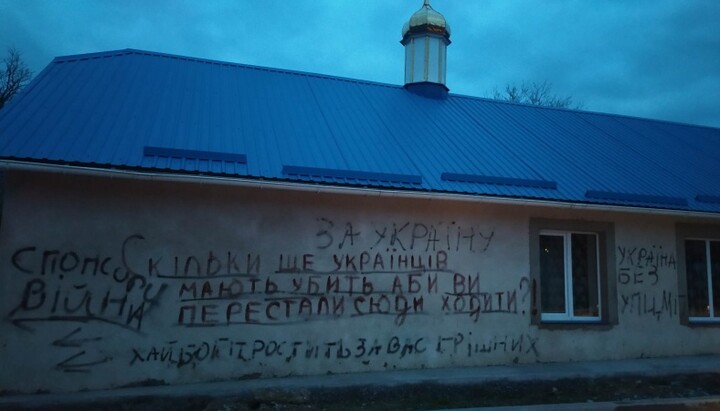 ЗА УКРАЇНУ
СПОНСОР
ВІЙНИ
СКІЛЬКИ ЩЕ УКРАЇНЦІВ
МАЮТЬ УБИТЬ АБИ ВИ
ПЕРЕСТАЛИ СЮДИ ХОДИТИ?!
ХАЙ БОГ ПРОСТИТЬ ЗА ВАС ГРІШНИХ
УКРАЇНА
БЕЗ
УПЦ МП